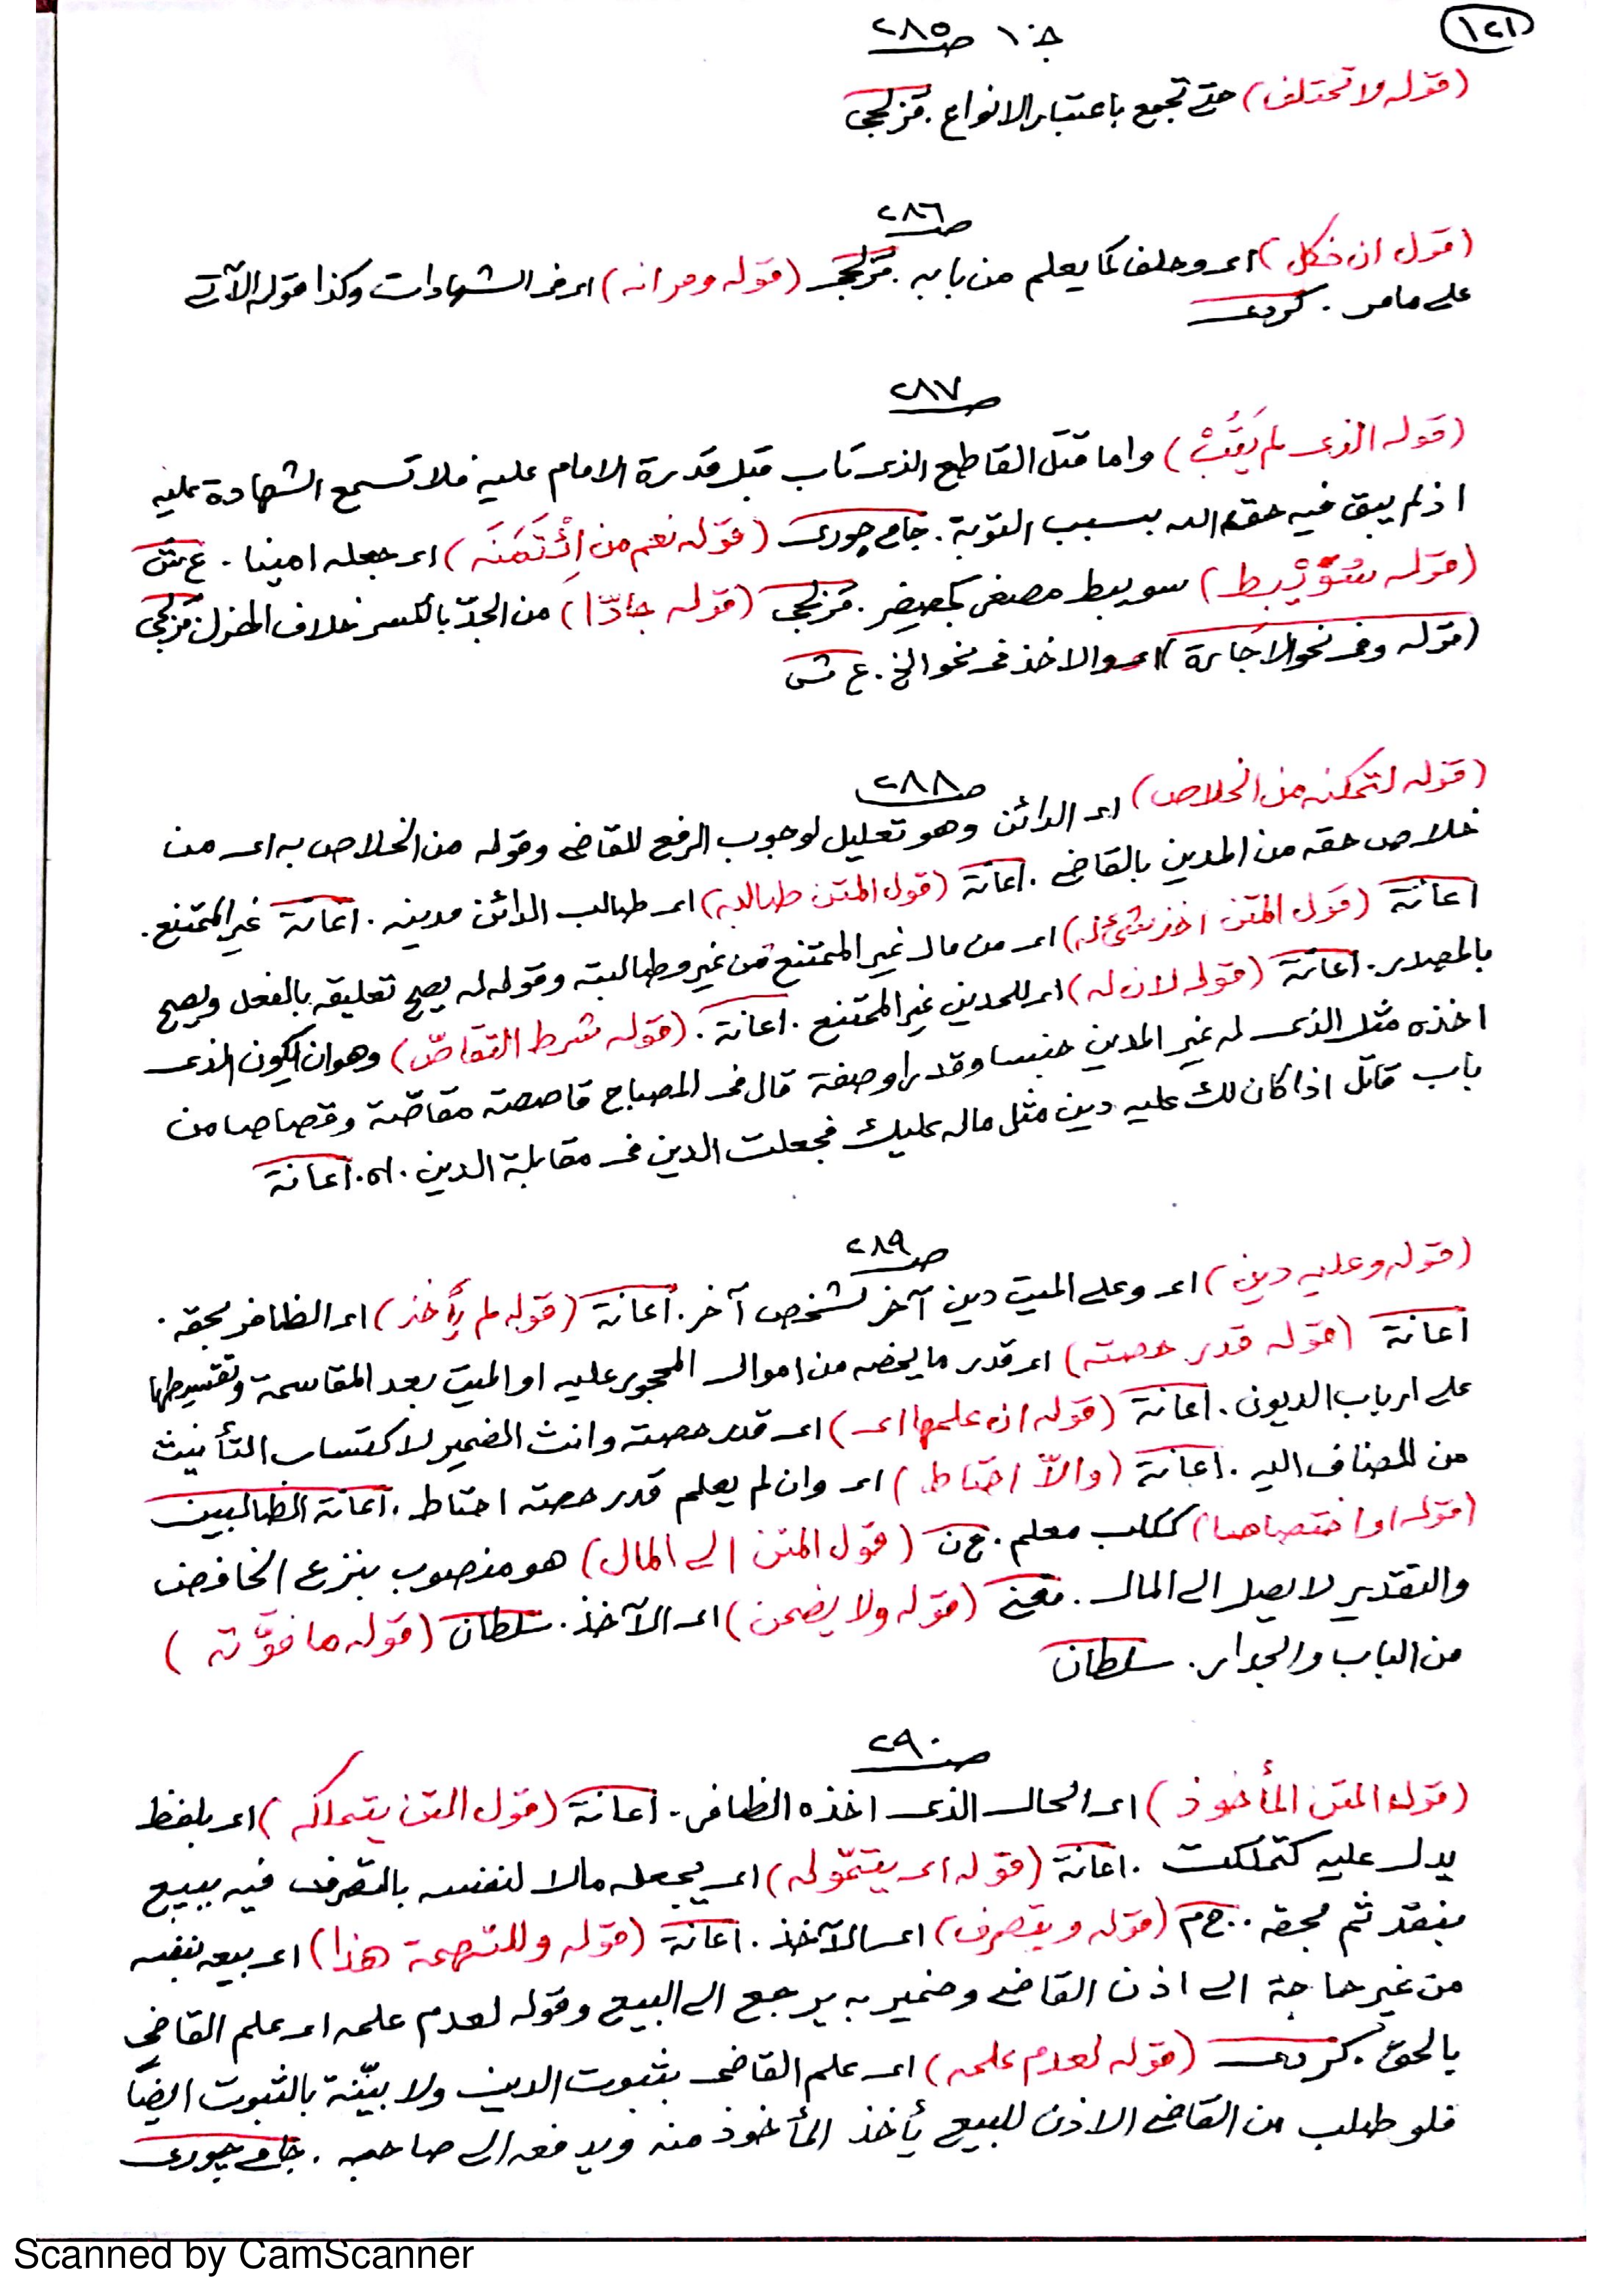 ١٢١
جـ ١٠ صـ ٢٨٥
(قوله ولا تختلف) حتى تجمع باعتبار الانواع . قزلجى
صـ ٢٨٦
(قول ان نكل) اى وحلف كما يعلم من بابه . قزلجى (قوله ومر انه) اى فى الشهادات وكذا قوله الآتى
على مامر . كردى
صـ ٢٨٧
(قوله الذى لم يَتُبْ) واما قتل القاطع الذى تاب قبل قدرة الامام عليه فلا تسمع الشهادة عليه
اذ لم يبق فيه حق الله بسبب التوبة . جامع چورى (قوله نعم من اِئْتَمَنَه) اى جعله امينا . ع ش
(قوله سُوَيْبِط) سويبط مصغر كجعيفر . قزلجى (قوله جادّا) من الجدّ بالكسر خلاف الهزل . قزلجى
(قوله وفى نحو الاجارة) اى والاخذ فى نحو الخ . ع ش
صـ ٢٨٨
(قوله لتمكنه من الخلاص) اى الدائن وهو تعليل لوجوب الرفع للقاضى وقوله من الخلاص به اى من
خلاص حقه من المدين بالقاضى . اعانة (قول المتن طالبه) اى طالب الدائن مدينه . اعانة غير الممتنع .
اعانة (قول المتن اخذ شئ له) اى من مال غير الممتنع من غير مطالبته وقوله له يصح تعليقه بالفعل ويصح
بالمصدر . اعانة (قوله لان له) اى للمدين غير الممتنع . اعانة . (قوله شرط التقاصّ) وهو ان يكون الذى
اخذه مثل الذى له غير المدين جنسا وقدرا وصفة قال فى المصباح قاصصته مقاصّة وقصاصا من
باب قاتل اذا كان لك عليه دين مثل ماله عليك فجعلت الدين فى مقابلة الدين . اه . اعانة
صـ ٢٨٩
(قوله وعليه دين) اى وعلى الميت دين آخر لشخص آخر . اعانة (قوله لم يأخذ) اى الظافر بحقه .
اعانة (قوله قدر حصته) اى قدر ما يخصه من اموال المحجور عليه او الميت بعد المقاسمة وتقسيطها
على ارباب الديون . اعانة (قوله ان علمها اى) اى قدر حصته وانث الضمير لاكتساب التأنيث
من المضاف اليه . اعانة (والاّ احتاط) اى وان لم يعلم قدر حصته احتاط . اعانة الطالبين
(قوله او اختصاصا) ككلب معلم . ع ن (قول المتن الى المال) هو منصوب بنزع الخافض
والتقدير لا يصل الى المال . مغنى (قوله ولا يضمن) اى الآخذ . سلطان (قوله ما فوّته)
من الباب والجدار . سلطان
صـ ٢٩٠
(قوله المتن المأخوذ) اى الحال الذى اخذه الظافر . اعانة (قول المتن يتملكه) اى بلفظ
يدل عليه كتملكت . اعانة (قوله اى يتموّله) اى يجعله مالا لنفسه بالتصرف فيه ببيع
بنقد ثم بحقه . ح م (قوله ويتصرف) اى الآخذ . اعانة (قوله وللتهمة هذا) اى بيعه بنفسه
من غير حاجة الى اذن القاضى وضمير به يرجع الى البيع وقوله لعدم علمه اى علم القاضى
بالحق . كردى (قوله لعدم علمه) اى علم القاضى بثبوت الدين ولا بيّنة بالثبوت ايضًا
فلو طلب من القاضى الاذن للبيع يأخذ المأخوذ منه ويدفعه الى صاحبه . جامع چورى
Scanned by CamScanner